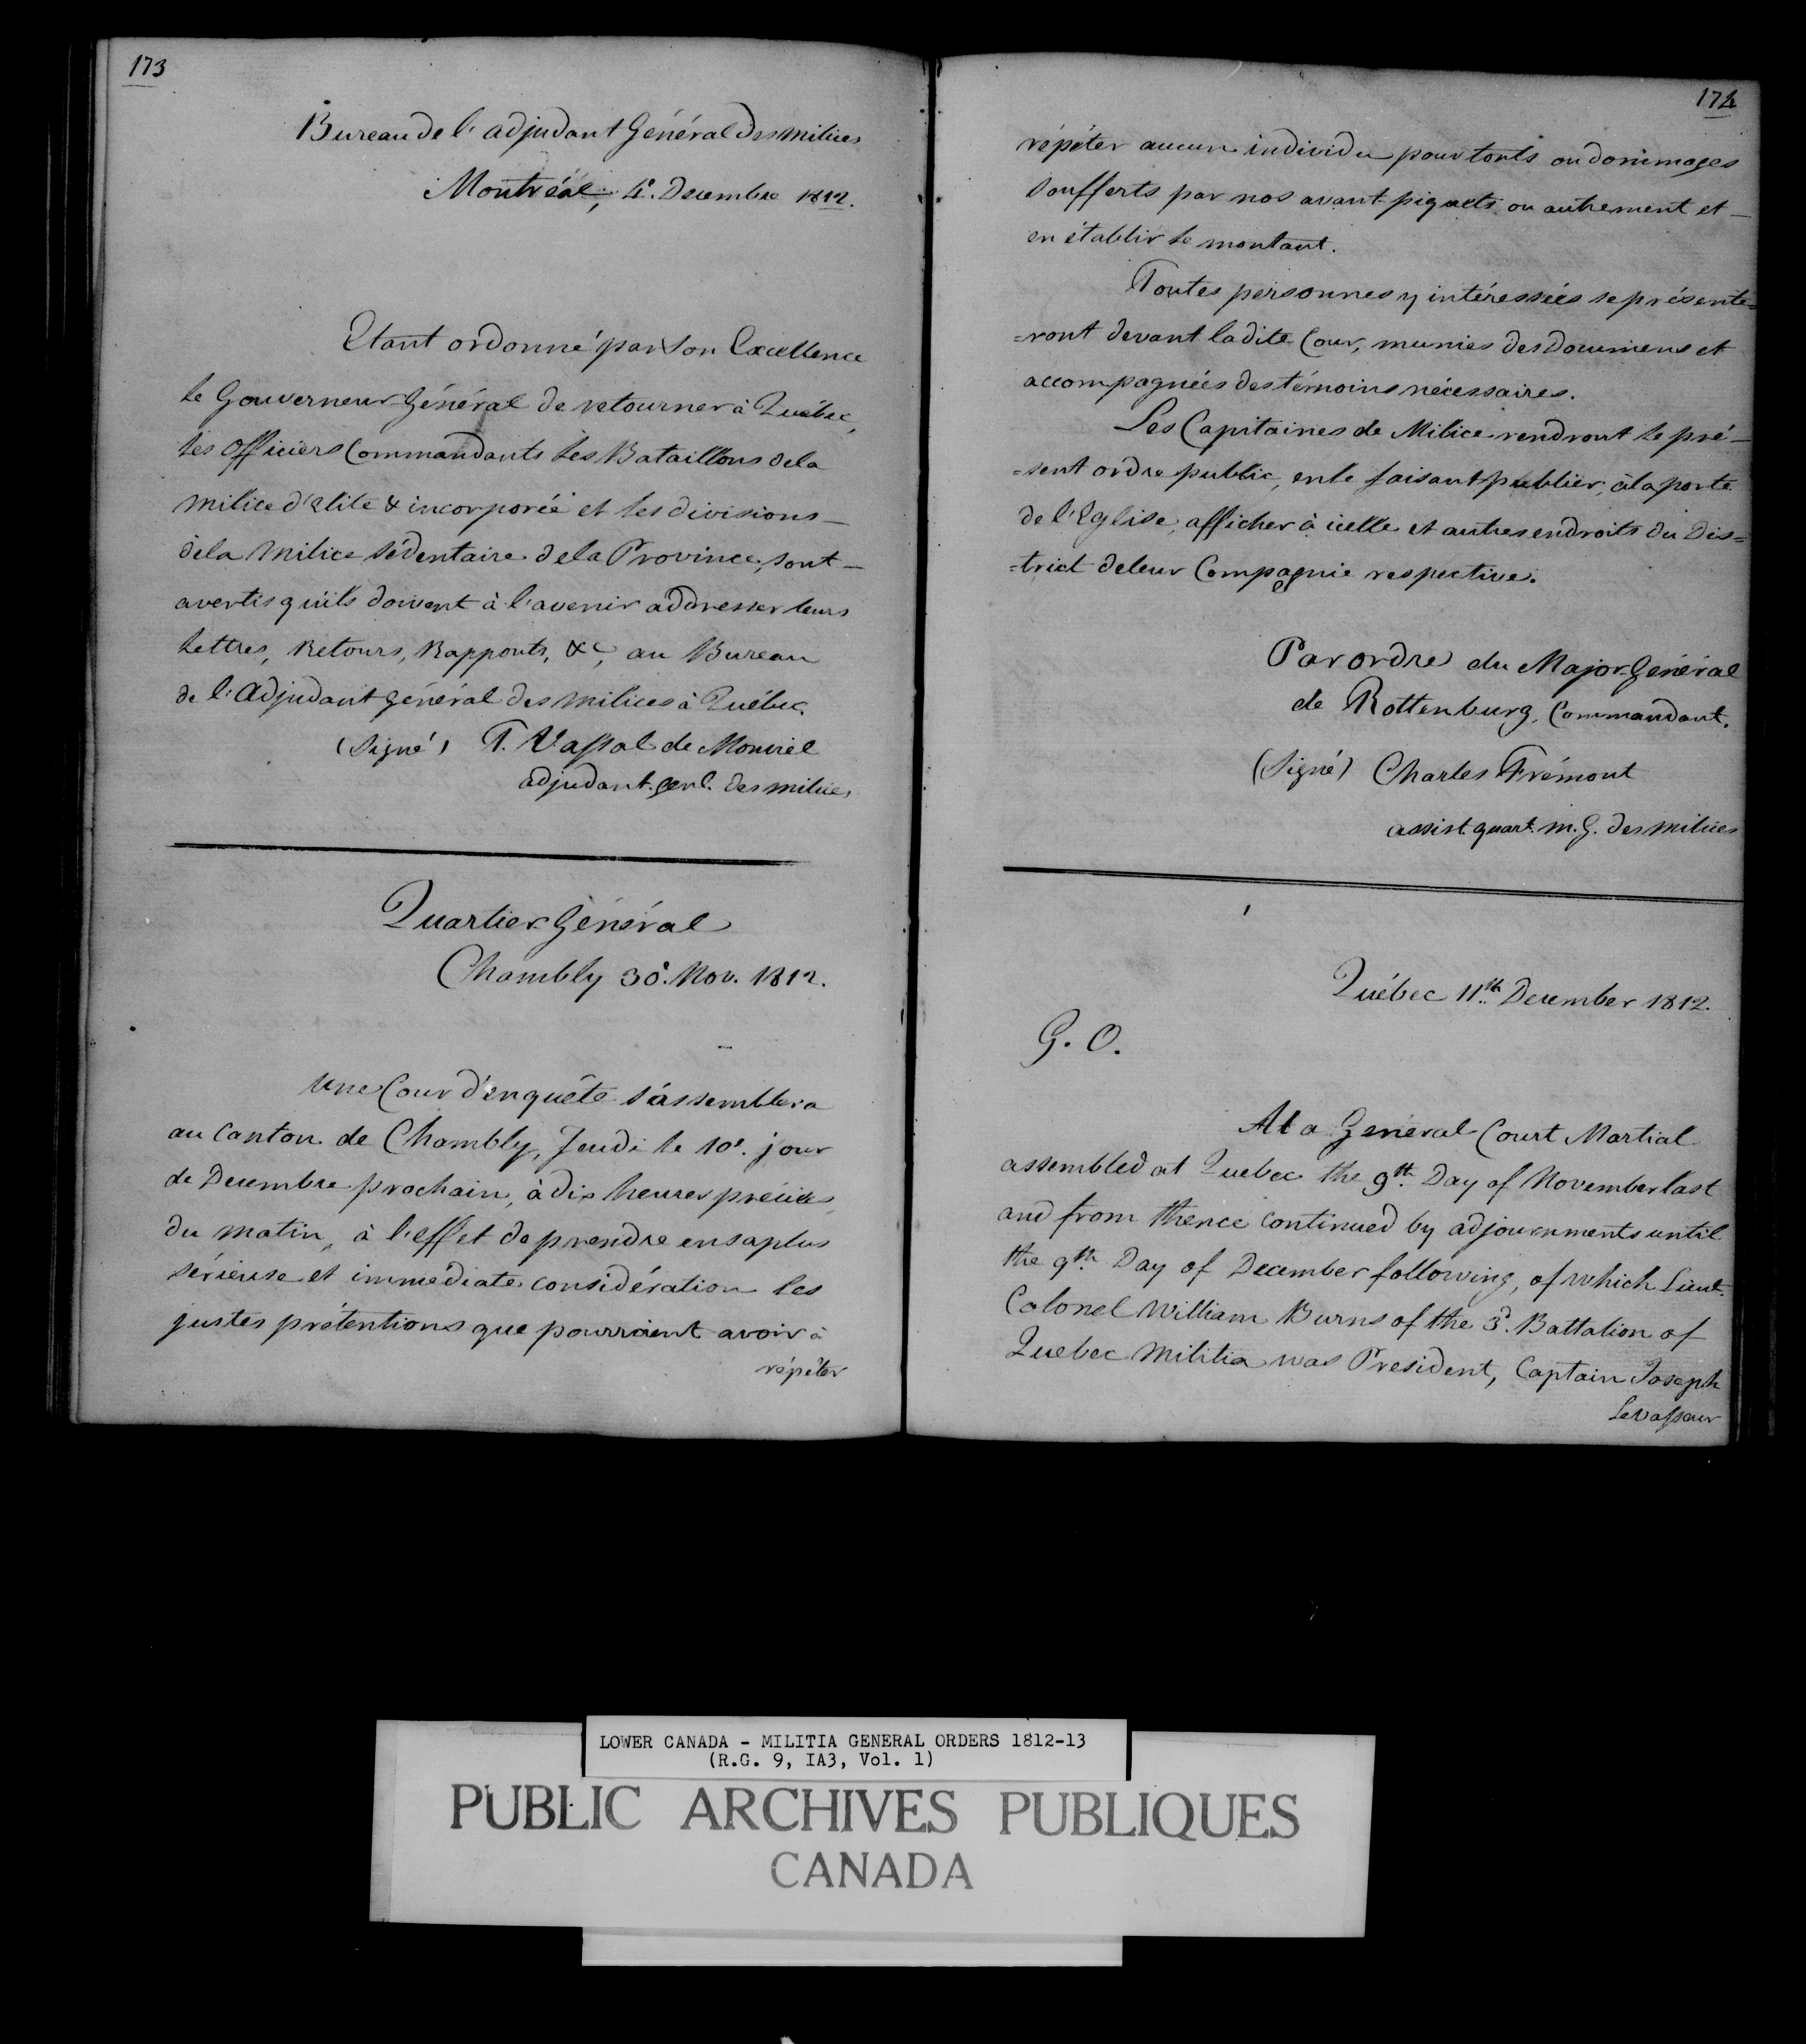 173
Bureau de l'adjudant Général des milices
Montréal, 4e. Decembre 1812.
Etant ordonné par Son Excellence
le Gouverneur Général de retourner à Québec,
les Officiers Commandants les Bataillons de la
milice d'élite & incorporée et les divisions
de la Milice Sédentaire de la Province, sont
avertis qu'ils doivent à l'avenir addresser leurs
Lettres, Retours, Rapports, &c, au Bureau
de l'Adjudant général des milices à Québec.
(Signé) F. Vassal de Monviel
adjudant. genl. des milices
Quartier Général
Chambly 30e. Nov. 1812.
Une Cour d'enquête s'assemblera
au Canton de Chambly, Jeudi le 10e. jour
de Decembre prochain, à dix heures précises
du matin, à l'effet de prendre en sa plus
sérieuse et immédiate considération les
justes prétentions que pourroient avoir à
répéter
174
répéter aucun individu pour torts ou dommages
soufferts par nos avant-piquets ou autrement et
en établir le montant.
Toutes personnes y intéressées se présente=
=ront devant ladite Cour, munies des Documens et
accompagnées des témoins nécessaires.
Les Capitaines de Milice rendront le pré-
=sent ordre public, en le faisant publier, à la porte
de l'Eglise, afficher à icelle et autres endroits du Dis=
=trict de leur Compagnie respective.
Par ordre du Major Général
de Rottenburg, Commandant.
(Signé) Charles Frémont
assist. quart. m. G. des milices
Québec 11th December 1812.
G. O.
At a General Court Martial
assembled at Quebec the 9th. Day of November last
and from thence continued by adjournments until
the 9th Day of December following, of which Lieut.
Colonel William Burns of the 3d. Battalion of
Quebec Militia was President, Captain Joseph
Levasseur
LOWER CANADA - MILITIA GENERAL ORDERS 1812-13
(R.G. 9, IA3, Vol. 1)
PUBLIC ARCHIVES PUBLIQUES
CANADA